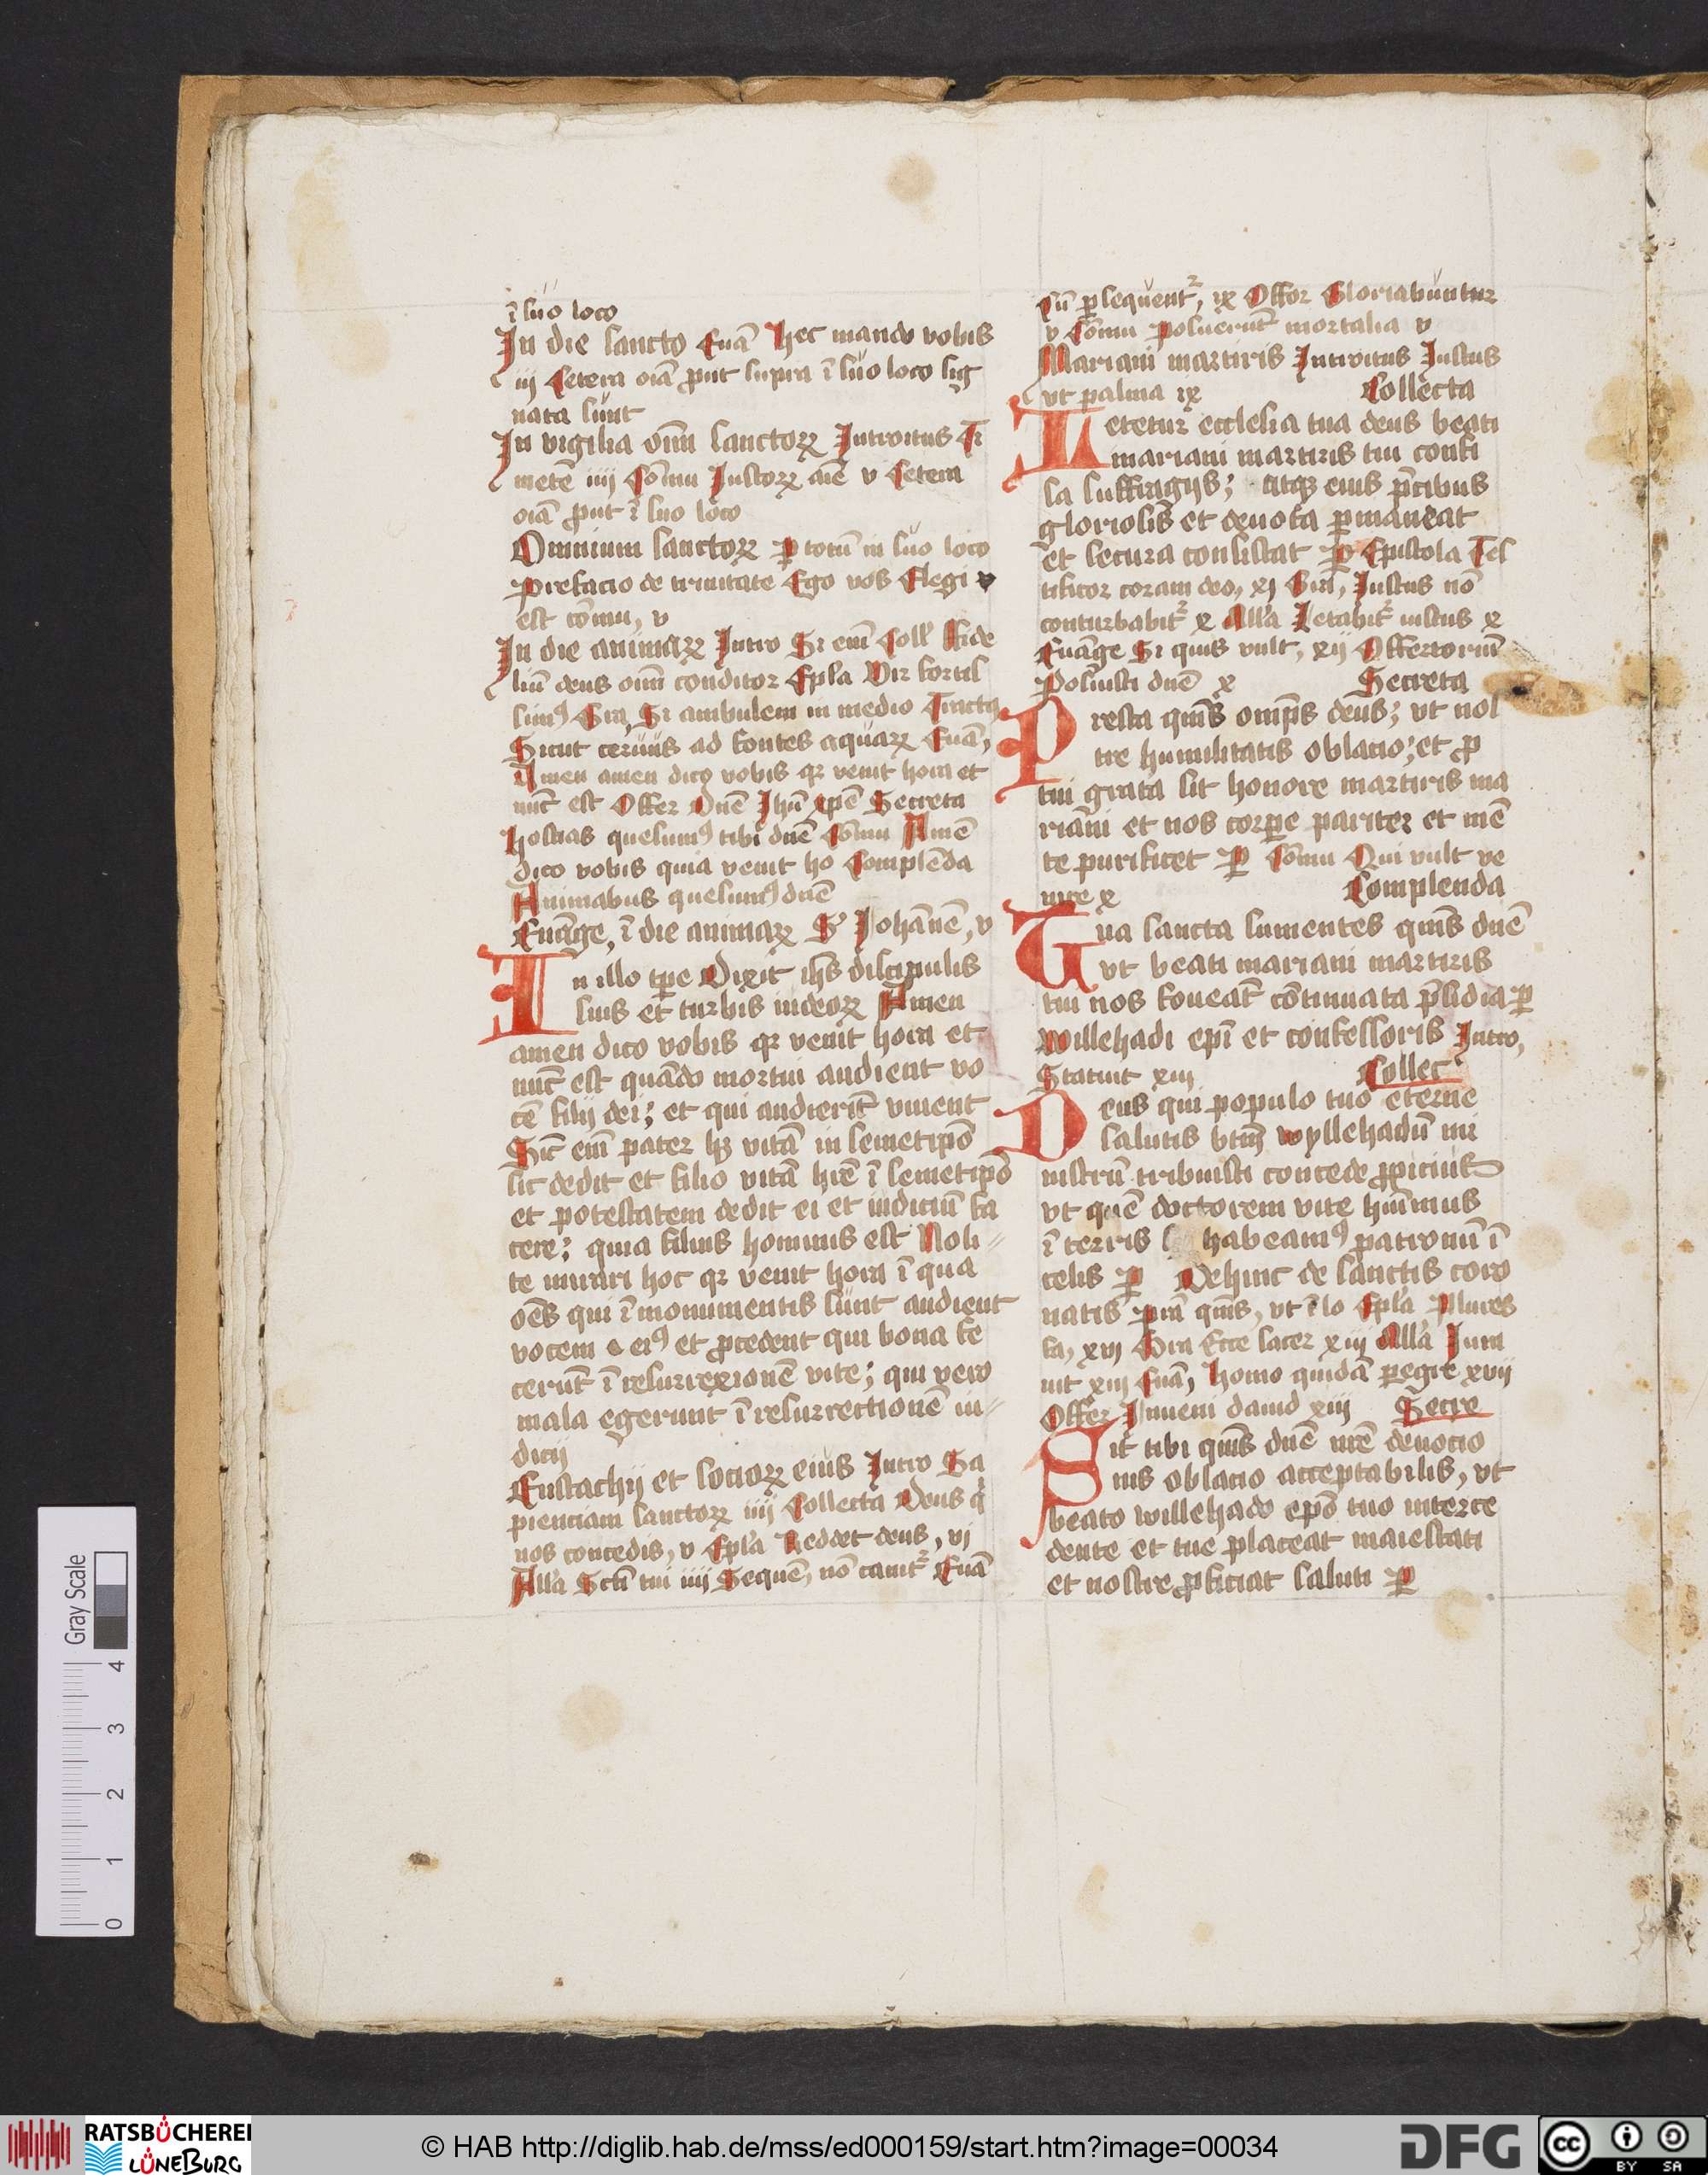 ī suo loco
In die sancto Euā Hec mando vobis
iij Cetera oīa prout supra ī suo loco sig
nata sunt
In vigilia oīm sanctorꝝ Introitus Ti
mete iiij Cōmu Justorꝝ aīe v Cetera
oīa prout ī suo loco
Omnium sanctorꝝ ꝑ totū in suo loco
Prefacio de trinitate Ego vos Elegi v
est cōmu, v
In die animarꝝ Intro Si enī Coll Fide
liū deus oīm conditor Epla Vir fortis
simꝰ Gra, Si ambulem in medio Tractꝰ
Sicut ceruus ad fontes aquarꝝ Euā,
Amen amen dico vobis qꝛ venit hora et
nūc est Offer Dñe Jhū xp̄e Secreta
Hostias quesumꝰ tibi dñe Cōmu Amē
dico vobis quia venit ho Complenda
Animabus quesumꝰ dñe
Euāge, ī die animaꝝ S' Johānē, v
In illo tꝑe Dixit ihs discipulis
suis et turbis iudeorꝝ Amen
amen dico vobis qꝛ venit hora et
nūc est quādo mortui audient vo
cē filij dei; et qui audierīt viuent
Sic enī pater hꝫ vitā in semetip̄o
sic dedit et filio vitā hr̄e ī semetip̄o
et potestatem dedit ei et iudiciū fa
cere; quia filius hominis est Noli
te mirari hoc qꝛ venit hora ī qua
oēs qui ī monumentis sunt audient
vocem eiꝰ et ꝓcedent qui bona fe
cerūt ī resurrexionē vite; qui vero
mala egerunt ī resurrectionē iu
dicij
Eustachij et sociorꝝ eius Intro Sa
pienciam sanctorꝝ iiij Collecta Deus q
nos concedis, v Epl'a Reddet deus, vj
All'a Scti tui iiij Sequē, nō canit' Euā
Cū ꝑsequent', ix Offor Gloriabuntur
v Cōmu Posuerūt mortalia v
Mariani martiris Introitus Justus
vt palma ix Collecta
Letetur ecclesia tua deus beati
mariani martiris tui confi
sa suffragijs; atqꝫ eius p̄cibus
gloriosis et deuota ꝑmaneat
et secura consistat ꝑ Epistola Tes
tificor coram deo, xj Gra, Justus nō
conturbabit' x All'a Letabit' iustus x
Euāge Si quis vult, xij Offertoriū
Posuisti dñe x Secreta
Presta qm̄s omp̄s deus; vt nos
tre humilitatis oblatio; et ꝓ
tui grata sit honore martiris ma
riani et nos corꝑe pariter et mē
te purificet ꝑ Cōmu Qui vult ve
nire x Complenda
Tua sancta sumentes qm̄s dñe
vt beati mariani martiris
tui nos foueat cōtinuata p̄sidia ꝑ
Willehadi ep̄i et confessoris Intro,
Statuit xiij Collec
Deus qui populo tuo eterne
salutis btm̄ wyllehadū mi
nistrū tribuisti concede ꝓpicius
vt quē doctorem vite huīmus
ī terris habeamꝰ patronū ī
celis ꝑ Dehinc de sanctis coro
natis ut ī lo Epl'a Plures
fa, xvj Gra Ecce sacer xiij All'a Jura
uit xiij Euā, Homo quidā ꝑegre xvij
Offer Inueni dauid xiij Secre
Sit tibi qm̄s dñe nr̄e deuocio
nis oblacio acceptabilis, vt
beato willehado ep̄o tuo interce
dente et tue placeat maiestati
et nostre ꝓficiat saluti ꝑ
Gray Scale
4
3
2
1
0
RATSBÜCHEREI
LÜNEBURG
© HAB http://diglib.hab.de/mss/ed000159/start.htm?image=00034
DFG
cc
BY SA